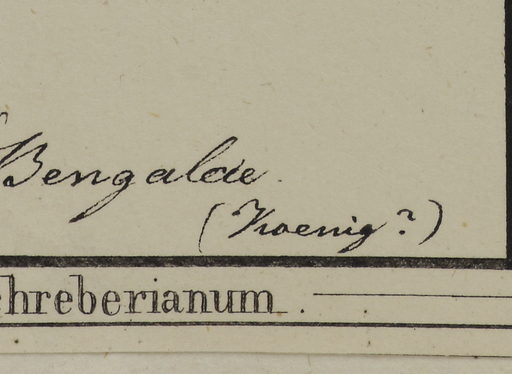 Bengalae
(Koenig?)
chreberianum.